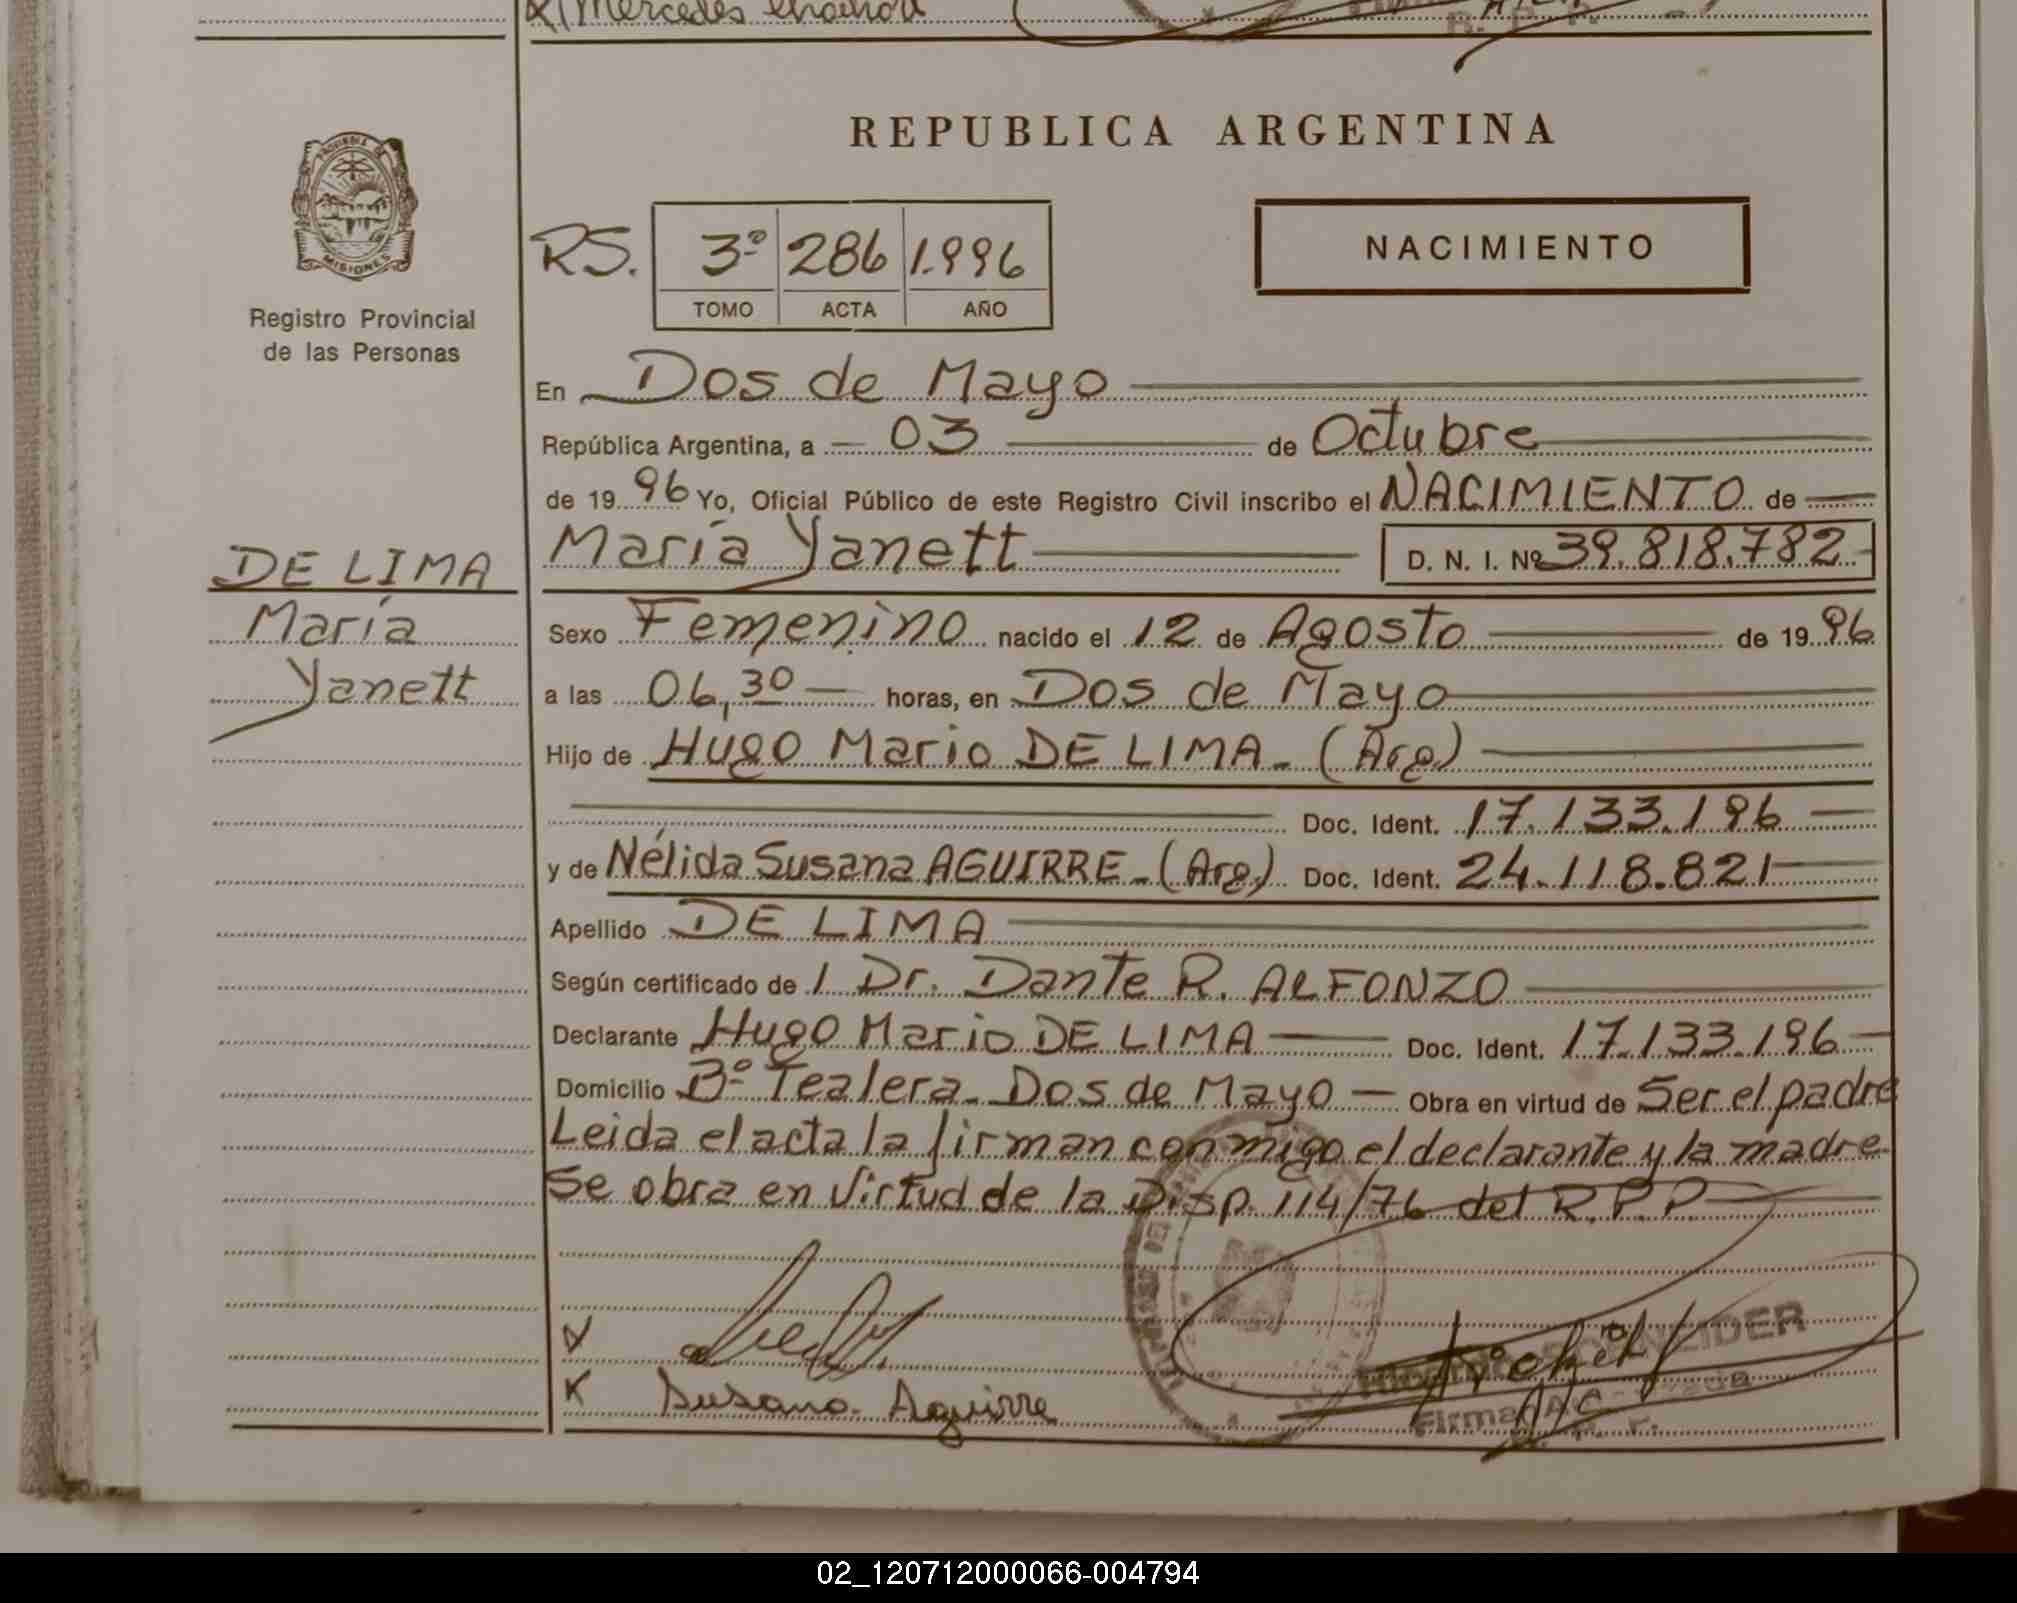 Mercedes
REPUBLICA ARGENTINA
PROVINCIA DE
MISIONES
Registro Provincial
de las Personas
RS. 3º 286 1.996
TOMO ACTA AÑO
NACIMIENTO
En Dos de Mayo
República Argentina, a 03 de Octubre
de 19 96 Yo, Oficial Público de este Registro Civil inscribo el NACIMIENTO de
DE LIMA
María
Yanett
María Yanett D. N. I. Nº 39.818.782
Sexo Femenino nacido el 12 de Agosto de 19 96
a las 06,30 horas, en Dos de Mayo
Hijo de Hugo Mario DE LIMA - (Arg)
Doc. Ident. 17.133.196
y de Nélida Susana AGUIRRE - (Arg.) Doc. Ident. 24.118.821
Apellido DE LIMA
Según certificado de l Dr. Dante R. ALFONZO
Declarante Hugo Mario DE LIMA Doc. Ident. 17.133.196
Domicilio Bº Tealera - Dos de Mayo Obra en virtud de Ser el padre
Leida el acta la firman conmigo el declarante y la madre
Se obra en virtud de la Disp. 114/76 del R.P.P.
Susana Aguirre
Firma A/C
02_120712000066-004794